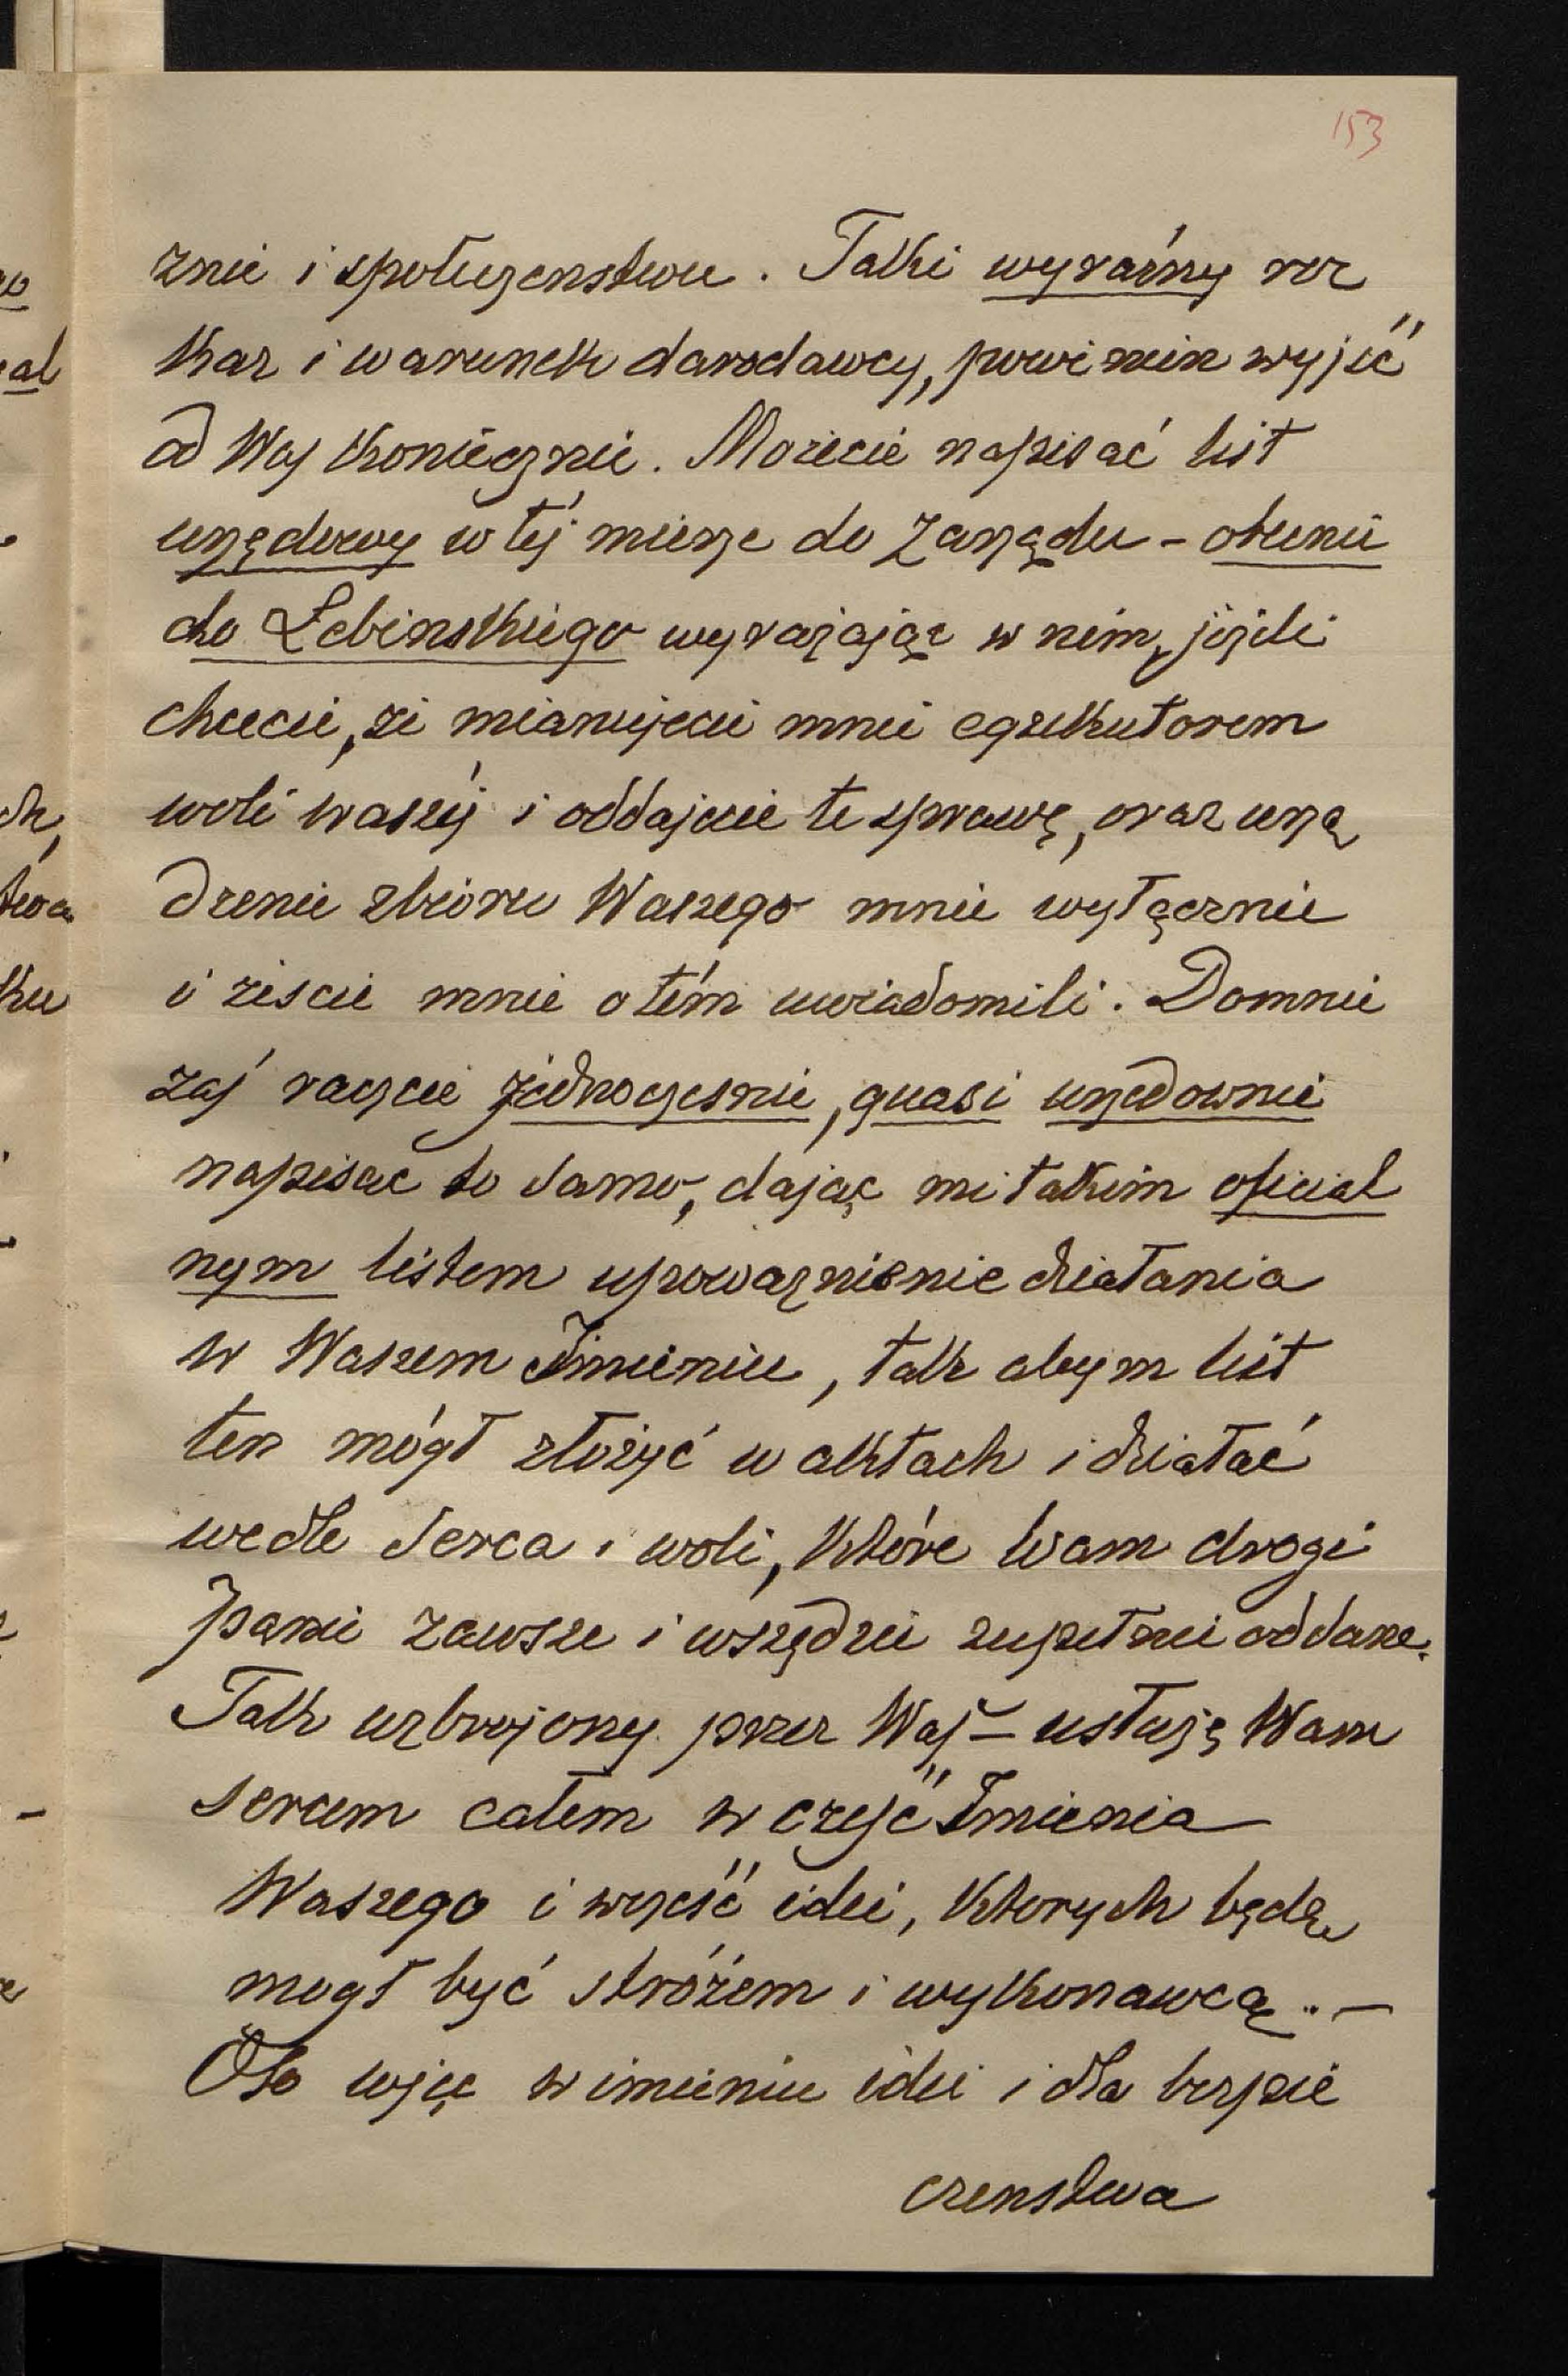 153
znie i społeczenstwu. Taki wyraźny roz
kaz i warunek darodawcy, powinien wyjść
od Was koniecznie. Możecie napisać list
urzędowy w téj mierze do Zarządu - obecnie
do Łebinskiego wyrażając w nim, jeżeli
chcecie, że mianujecie mnie egzekutorem
woli waszéj i oddajecie te sprawę, oraz urzą
dzenie zbioru Waszego mnie wyłącznie
i żeście mnie o tém uwiadomili. Domnie
zaś raczcie jednoczesnie, quasi urzedownie
napisac to samo, dając mi takim oficial
nym listem upoważnienie działania
w Waszem Imieniu, tak abym list
ten mógł złożyć w aktach i działać
wedle serca i woli, które Wam drogi
Panie zawsze i wszędzie zupełnie oddane.
Tak uzbrojony przez Waś - usłużę Wam
sercem całem w cześć Imienia
Waszego i w cześć idei, ktorych będę
mogł być stróżem i wykonawcą. -
Oto więc w imieniu idei i dla bezpie
czenstwa